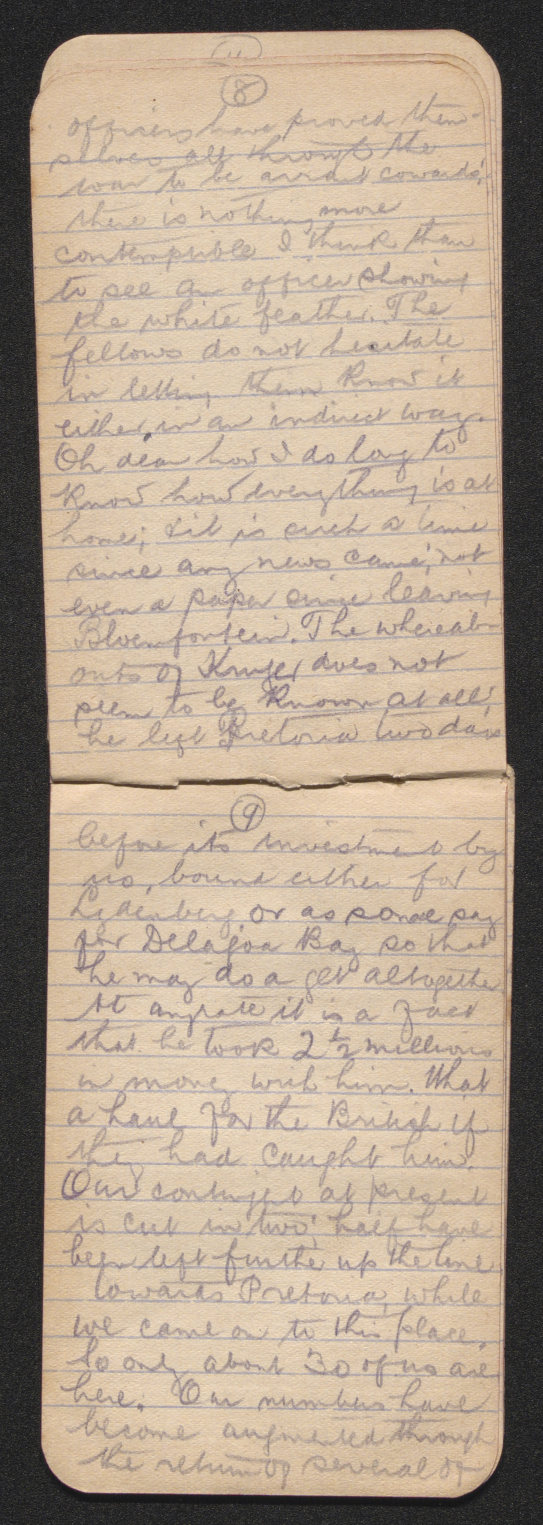 8
officers have proved them-
selves all through the
war to be arrant cowards;
there is nothing more
contemptible I think than
to see an officer showing
the white feather. The
fellows do not hesitate
in letting them know it
either, in an indirect way.
Oh dear how I do long to
know how everything is at
home; & it is such a time
since any news came; not
even a paper since leaving
Bloemfontein. The whereab-
outs of Kruger does not
seem to be known at all;
he left Pretoria two days
9
before its investment by
us, bound either for
Lydenberg or as some say
for Delagoa Bay so that
he may do a get altogether
At anyrate it is a fact
that he took 2½ millions
in money with him. What
a haul for the British if
they had caught him.
Our contingent at present
is cut in two; half have
been left further up the line
towards Pretoria, while
we came on to this place.
So only about 30 of us are
here. Our numbers have
become augmented through
the return of several of